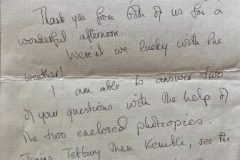 Thank you from both of us for a
wonderful afternoon.
Weren't we lucky with the
weather!
I am able to answer two
of your questions with the help of
the two enclosed photopies.
Tetbury Kemble, see the